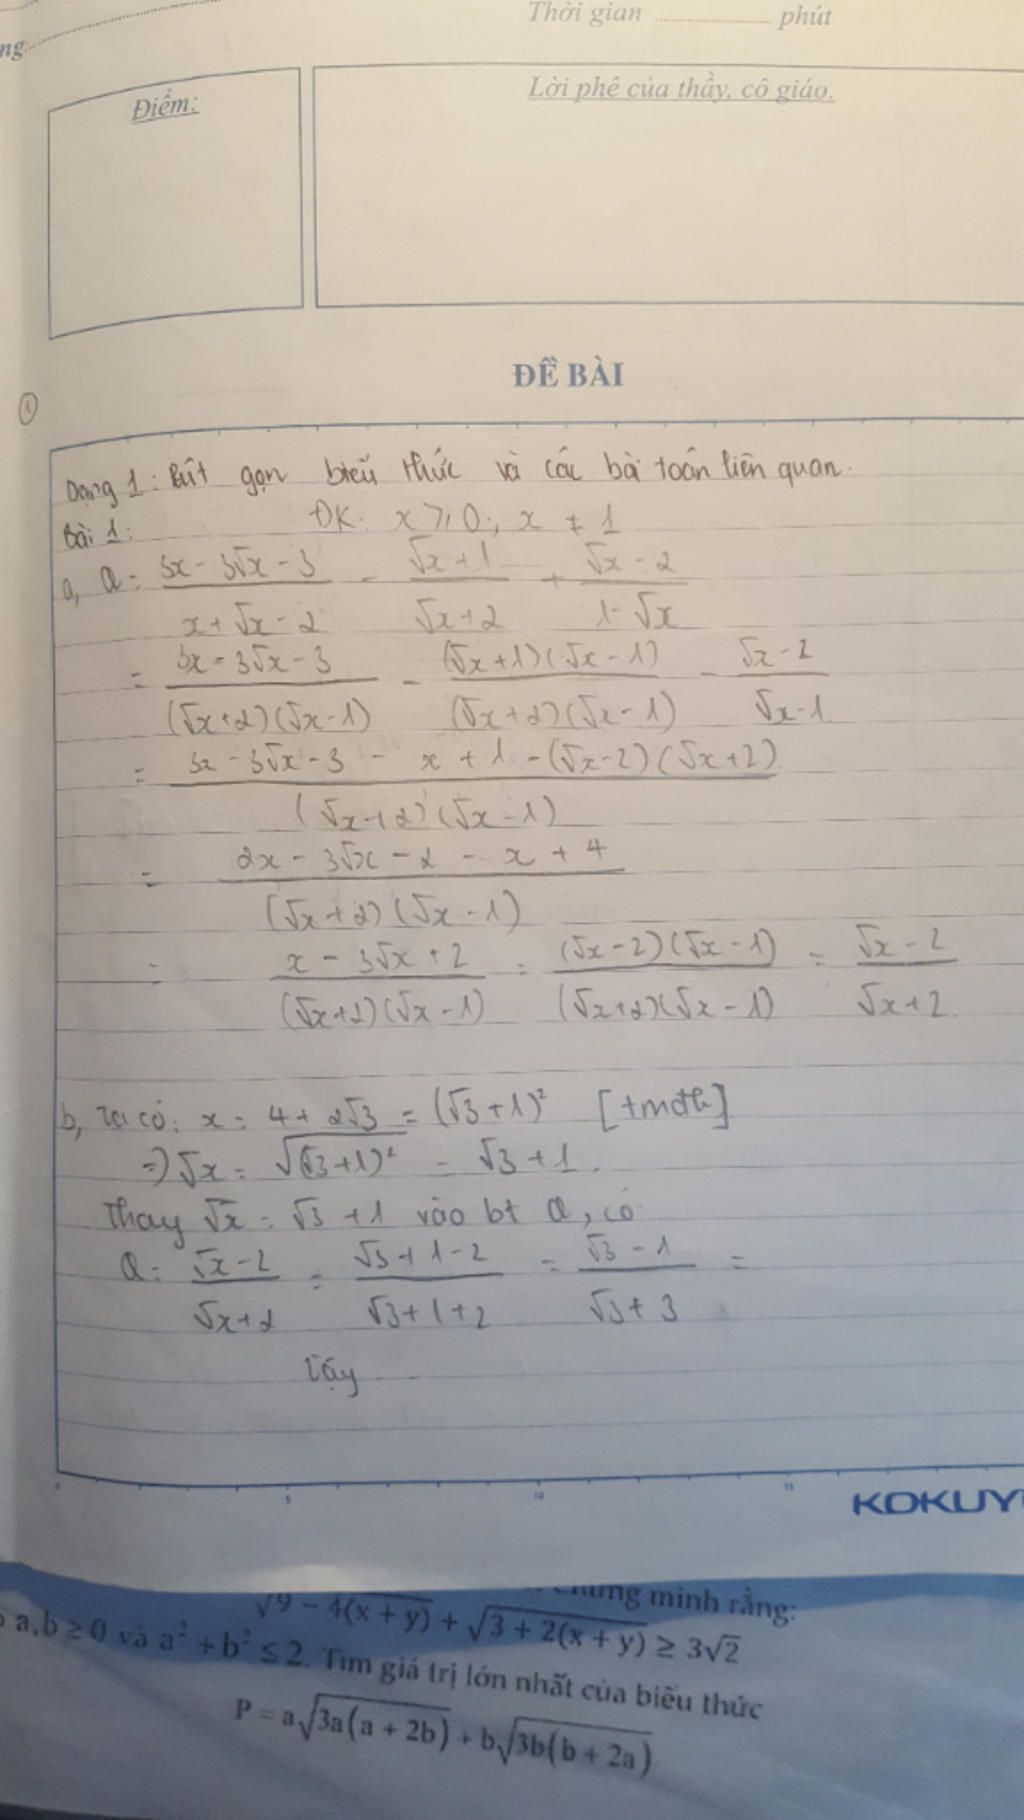 Thời gian ............ phút
ng:
Điểm:
Lời phê của thầy, cô giáo.
ĐỀ BÀI
1
Dạng 1: Rút gọn biểu thức và các bài toán liên quan.
Bài 1: ĐK: x ≥ 0; x ≠ 1
a, Q = (3x - 3√x - 3)/(x + √x - 2) - (√x + 1)/(√x + 2) + (√x - 2)/(1 - √x)
= (3x - 3√x - 3)/((√x + 2)(√x - 1)) - ((√x + 1)(√x - 1))/((√x + 2)(√x - 1)) - (√x - 2)/(√x - 1)
= (3x - 3√x - 3 - x + 1 - (√x - 2)(√x + 2))/((√x + 2)(√x - 1))
= (2x - 3√x - 2 - x + 4)/((√x + 2)(√x - 1))
= (x - 3√x + 2)/((√x + 2)(√x - 1)) = ((√x - 2)(√x - 1))/((√x + 2)(√x - 1)) = (√x - 2)/(√x + 2)
b, Ta có: x = 4 + 2√3 = (√3 + 1)² [tmđk]
=> √x = √((√3 + 1)²) = √3 + 1.
Thay √x = √3 + 1 vào bt Q, có
Q = (√x - 2)/(√x + 2) = (√3 + 1 - 2)/(√3 + 1 + 2) = (√3 - 1)/(√3 + 3) =
Vậy
5 10 15
KOKUY
minh rằng:
√(9 - 4(x + y)) + √(3 + 2(x + y)) ≥ 3√2
a, b ≥ 0 và a² + b² ≤ 2. Tìm giá trị lớn nhất của biểu thức
P = a√(3a(a + 2b)) + b√(3b(b + 2a))